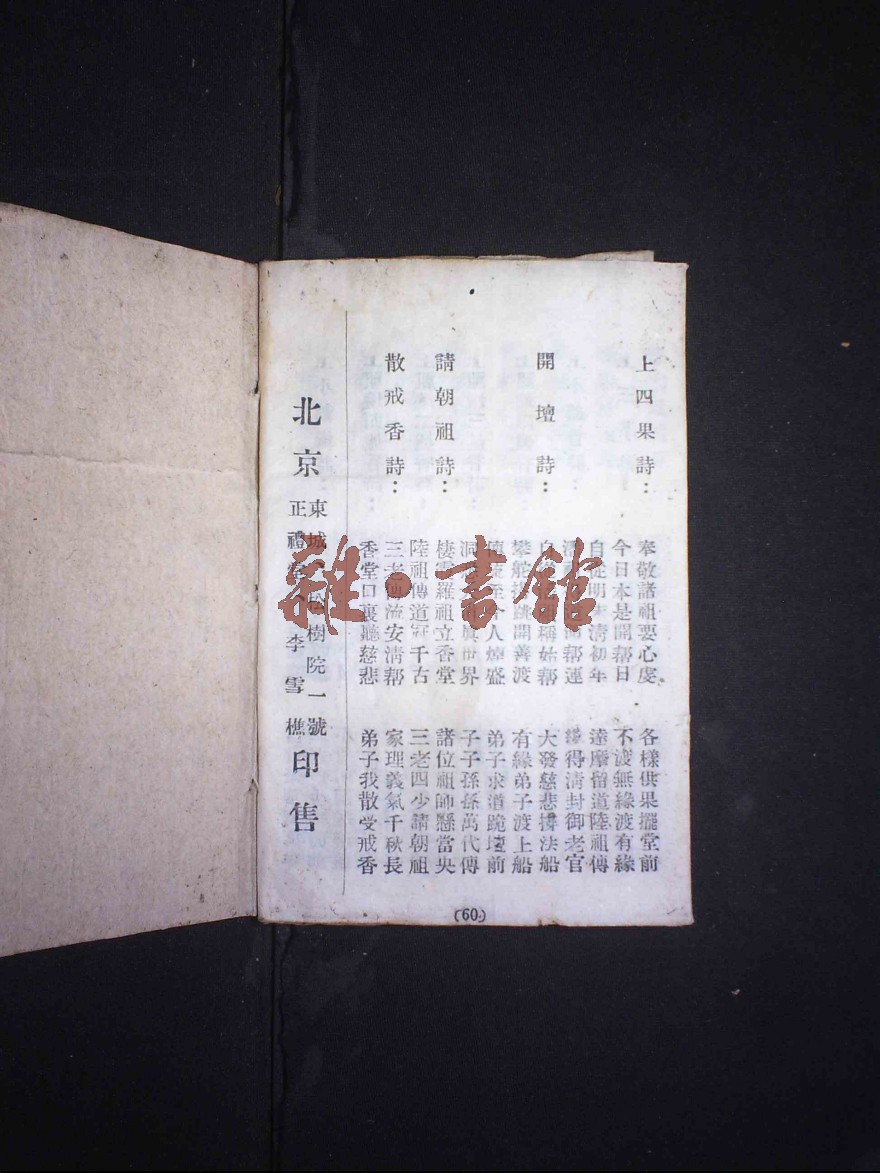 上四果詩：
奉敬諸祖要心虔 各樣供果擺堂前
今日本是開幫日 不渡無緣渡有緣
自從明末清初年 達摩留道陸祖傳
幫運 緣得清封御老官
開壇詩：
稱始幫 大發慈悲撐法船
攀舵 跳開善渡 有緣弟子渡上船
人煙盛 弟子求道跪壇前
世界 子子孫孫萬代傳
請朝祖詩：
棲雲羅祖立香堂 諸位祖師懸當央
陸祖傳道冠千古 三老四少請朝祖
散戒香詩：
三老傳流安清幫 家理義氣千秋長
香堂口裏聽慈悲 弟子我散受戒香
北京
東城 松樹院一號
正禮堂 李雪樵
印售
(60)
雜·書館